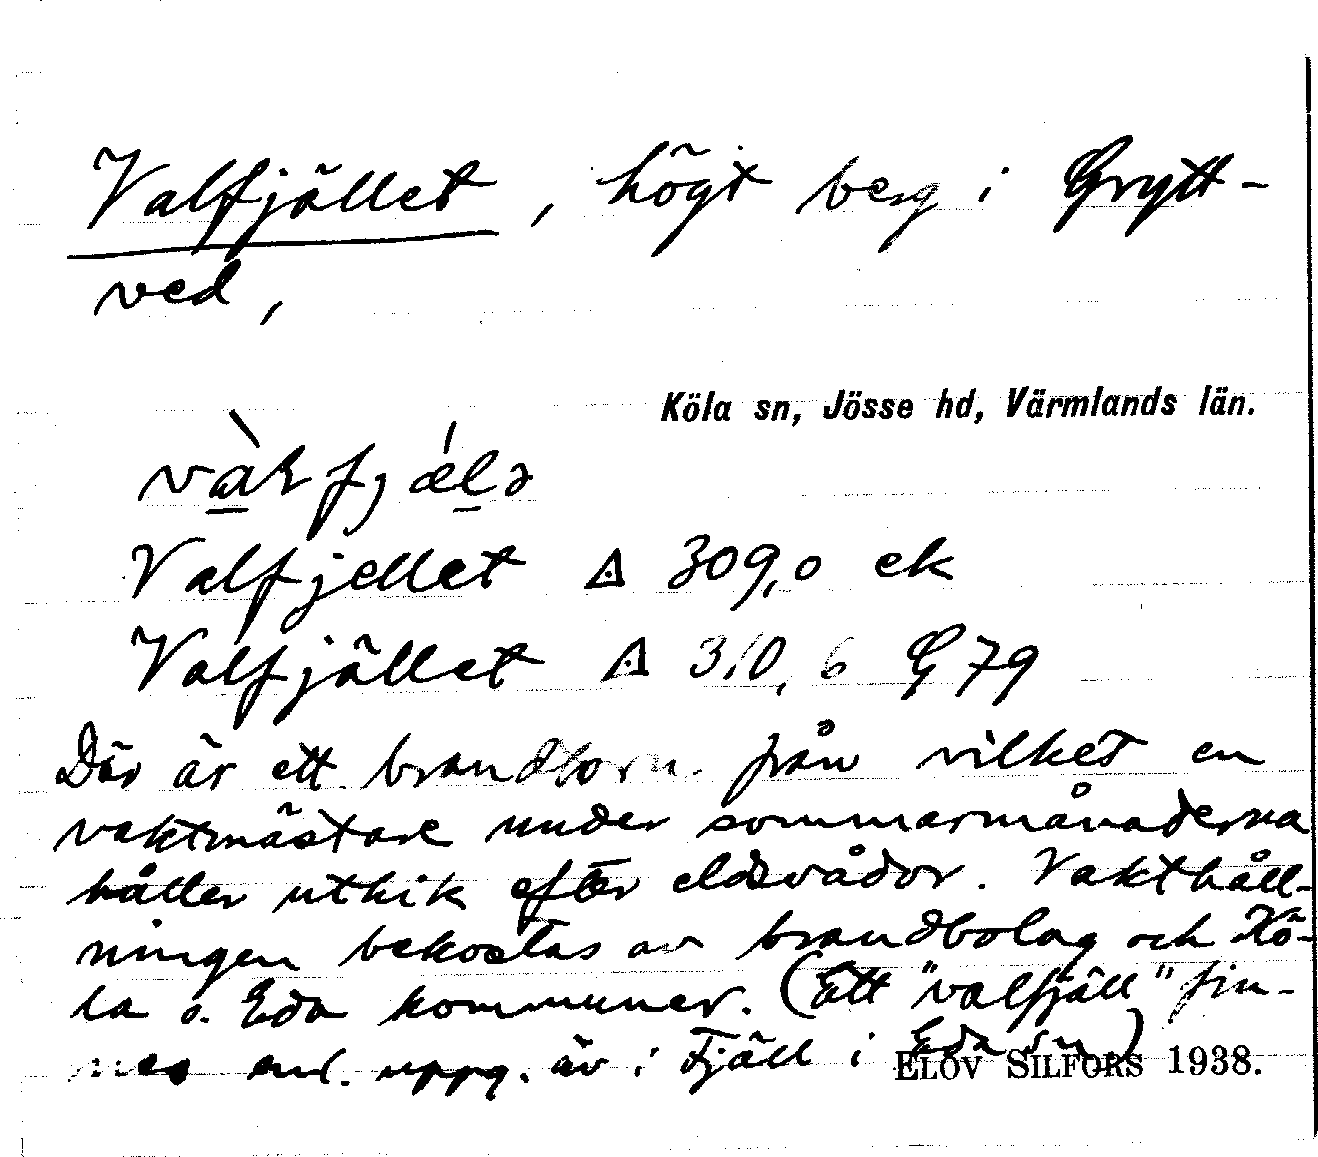 Valfjället, högt berg i Grytt-
ved,
Köla sn, Jösse hd, Värmlands län.
Valfjellet ◬ 309,0 ek
Valfjället ◬ 310,6 G 79
Där är ett brandtorn från vilket en
vaktmästare under sommarmånaderna
håller utkik efter eldsvådor. Vakthåll-
ningen bekostas av brandbolag och Kö-
la o. Eda kommuner. (Ett "valfjäll" fin-
nes enl. uppg. äv i Fjäll i Eda sn)
ELOV SILFORS 1938.